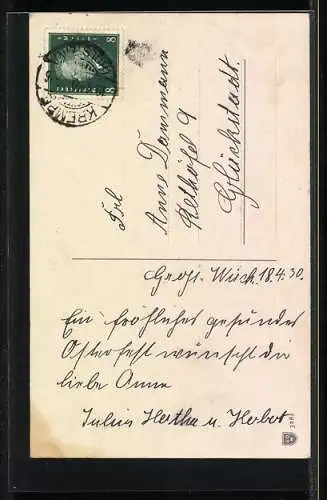 8 8
KREMPE
Frl
Anne Dammann
Rethöfel 9
Glückstadt
Groß. Wisch. 18.4.30.
Ein fröhliches gesundes
Osterfest wünscht dir
liebe Anne
Julius Hertha u. Herbert